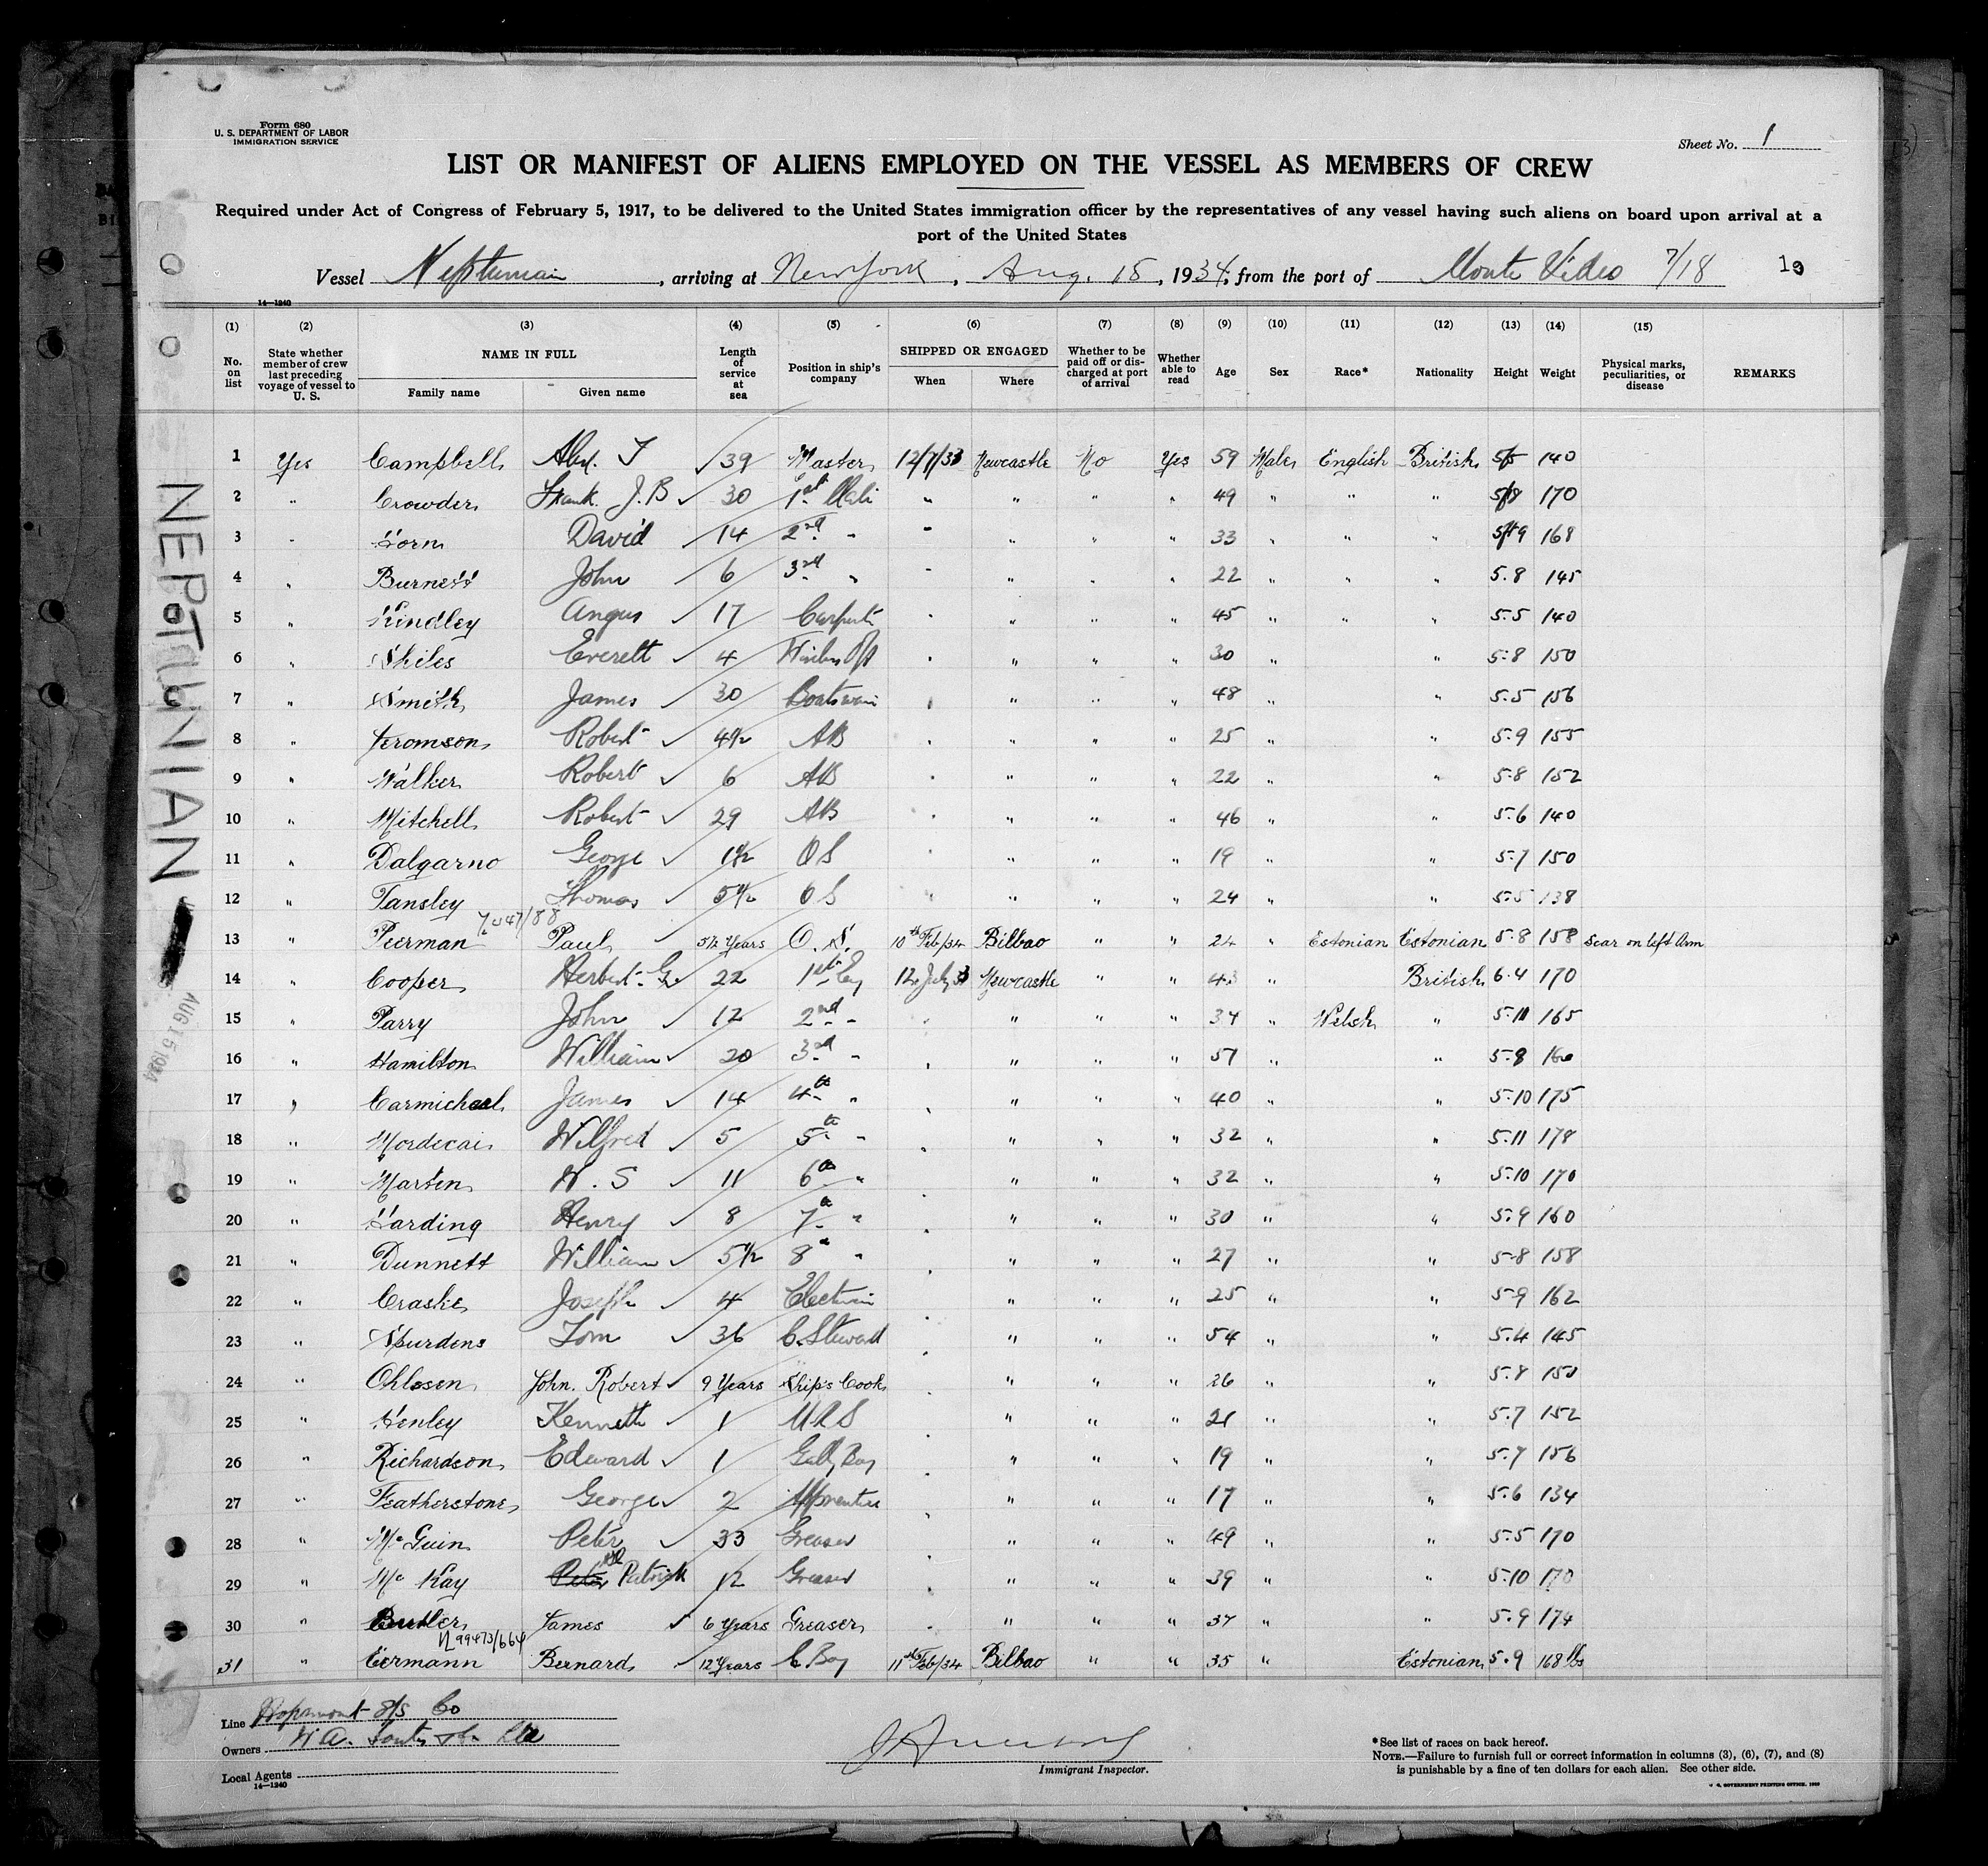 Form 680
U. S. DEPARTMENT OF LABOR
IMMIGRATION SERVICE
Sheet No. 1
LIST OR MANIFEST OF ALIENS EMPLOYED ON THE VESSEL AS MEMBERS OF CREW
Required under Act of Congress of February 5, 1917, to be delivered to the United States immigration officer by the representatives of any vessel having such aliens on board upon arrival at a
port of the United States
Vessel Neptunian, arriving at New York, Aug. 15, 1934, from the port of Monte Video 7/18
14—1240
(1) (2) (3) (4) (5) (6) (7) (8) (9) (10) (11) (12) (13) (14) (15)
No. on list State whether member of crew last preceding voyage of vessel to U. S. NAME IN FULL Family name Given name Length of service at sea Position in ship's company SHIPPED OR ENGAGED When Where Whether to be paid off or discharged at port of arrival Whether able to read Age Sex Race* Nationality Height Weight Physical marks, peculiarities, or disease REMARKS
1 Yes Campbell 39 Master 12/7/33 Newcastle No Yes 59 Male English British 5/5 140
2 " Crowder Frank J.B 30 1st Mate " " " " 49 " " " 5/8 170
3 " David 14 2nd " " " " " 33 " " " 5/9 168
4 " Burness John 6 3rd " " " " " 22 " " " 5.8 145
5 " Kindley Angus 17 " " " " 45 " " " 5.5 140
6 " Skiles Everett 4 " " " " 30 " " 5.8 150
7 " Smith James 30 Boatswain " " " " 48 " " 5.5 156
8 " Robert 4½ AB " " " " 25 " " 5.9 155
9 " Walker Robert 6 AB " " " " 22 " " 5.8 152
10 " Mitchell Robert 29 AB " " " " 46 " " 5.6 140
11 " Dalgarno George 1½ OS " " " " 19 " " 5.7 150
12 " Tansley Thomas 5½ OS " " " " 24 " " 5.5 138
13 " Peerman Paul 5½ Years O. S. 10th Feb/34 Bilbao " " 24 " Estonian Estonian 5.8 158 Scar on left Arm
14 " Cooper Herbert G. 22 1st Eng 12 July 33 Newcastle " " 43 " British 6.4 170
15 " Parry John 12 2nd " " " " " 34 " Welsh " 5.11 165
16 " Hamilton William 20 3rd " " " " " 51 " " 5.8 160
17 " Carmichael James 14 4th " " " " " 40 " " 5.10 175
18 " Mordecai Wilfred 5 5th " " " " " 32 " " 5.11 178
19 " Marten W. S 11 6th " " " " " 32 " " 5.10 170
20 " Harding Henry 8 7th " " " " " 30 " " 5.9 160
21 " Dunnett William 5½ 8th " " " " " 27 " " 5.8 158
22 " Craske Joseph 4 Electrician " " " " 25 " " 5.9 162
23 " Spurdens Tom 36 C. Steward " " " " 54 " " 5.4 145
24 " Ohlesen John. Robert 9 Years Ship's Cook " " " " 26 " " 5.8 150
25 " Henley Kenneth 1 " " " " 21 " " 5.7 152
26 " Richardson Edward 1 Gally Boy " " " " 19 " " 5.7 156
27 " Featherstone George 2 Apprentice " " " " 17 " " 5.6 134
28 " McGuin Peter 33 Greaser " " " " 49 " " 5.5 170
29 " Mc Kay Peter Patrick 12 Greaser " " " " 39 " " 5.10 170
30 " Butler James 6 Years Greaser " " " " 37 " " 5.9 174
99473/664
31 " Eermann Bernard 12 Years C Boy 11th Feb/34 Bilbao " " 35 " Estonian 5.9 168 lbs
NEPTUNIAN
AUG 15 1934
Line S/S Co
Owners W.A.
Local Agents
14—1240
Immigrant Inspector.
*See list of races on back hereof.
NOTE.—Failure to furnish full or correct information in columns (3), (6), (7), and (8)
is punishable by a fine of ten dollars for each alien. See other side.